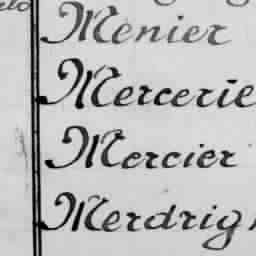 Menier
Mercerie
Mercier
Merdrig